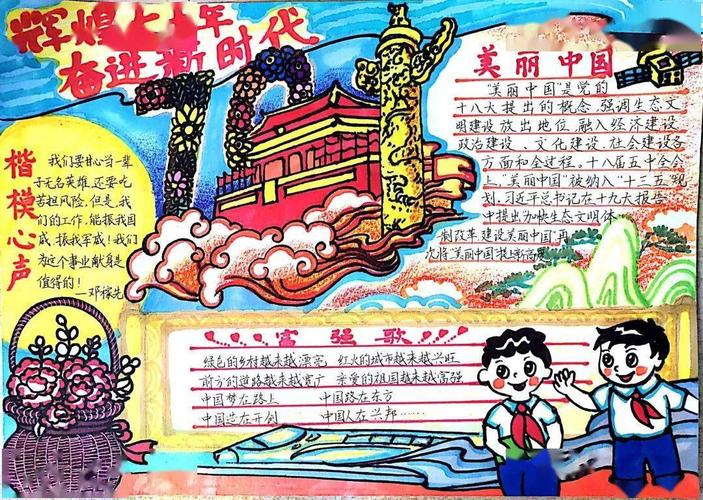 辉煌七十年
奋进新时代
70
楷模心声
我们要甘心当一辈
子无名英雄,还要吃
苦担风险。但是,我
们的工作,能振我国
威,振我军威!我们
为这个事业献身是
值得的!
—邓稼先
美丽中国
“美丽中国”是党的
十八大提出的概念,强调生态文
明建设放出地位,融入经济建设
政治建设、文化建设、社会建设各
方面和全过程。十八届五中全会
上,“美丽中国”被纳入“十三五”规
划,习近平总书记在十九大报告
中提出加快生态文明体
制改革,建设美丽中国”再
次将“美丽中国”提
富强歌
绿色的乡村越来越漂亮 红火的城市越来越兴旺
前方的道路越来越宽广 亲爱的祖国越来越富强
中国梦在路上 中国路在东方
中国造在开创 中国人在兴邦……